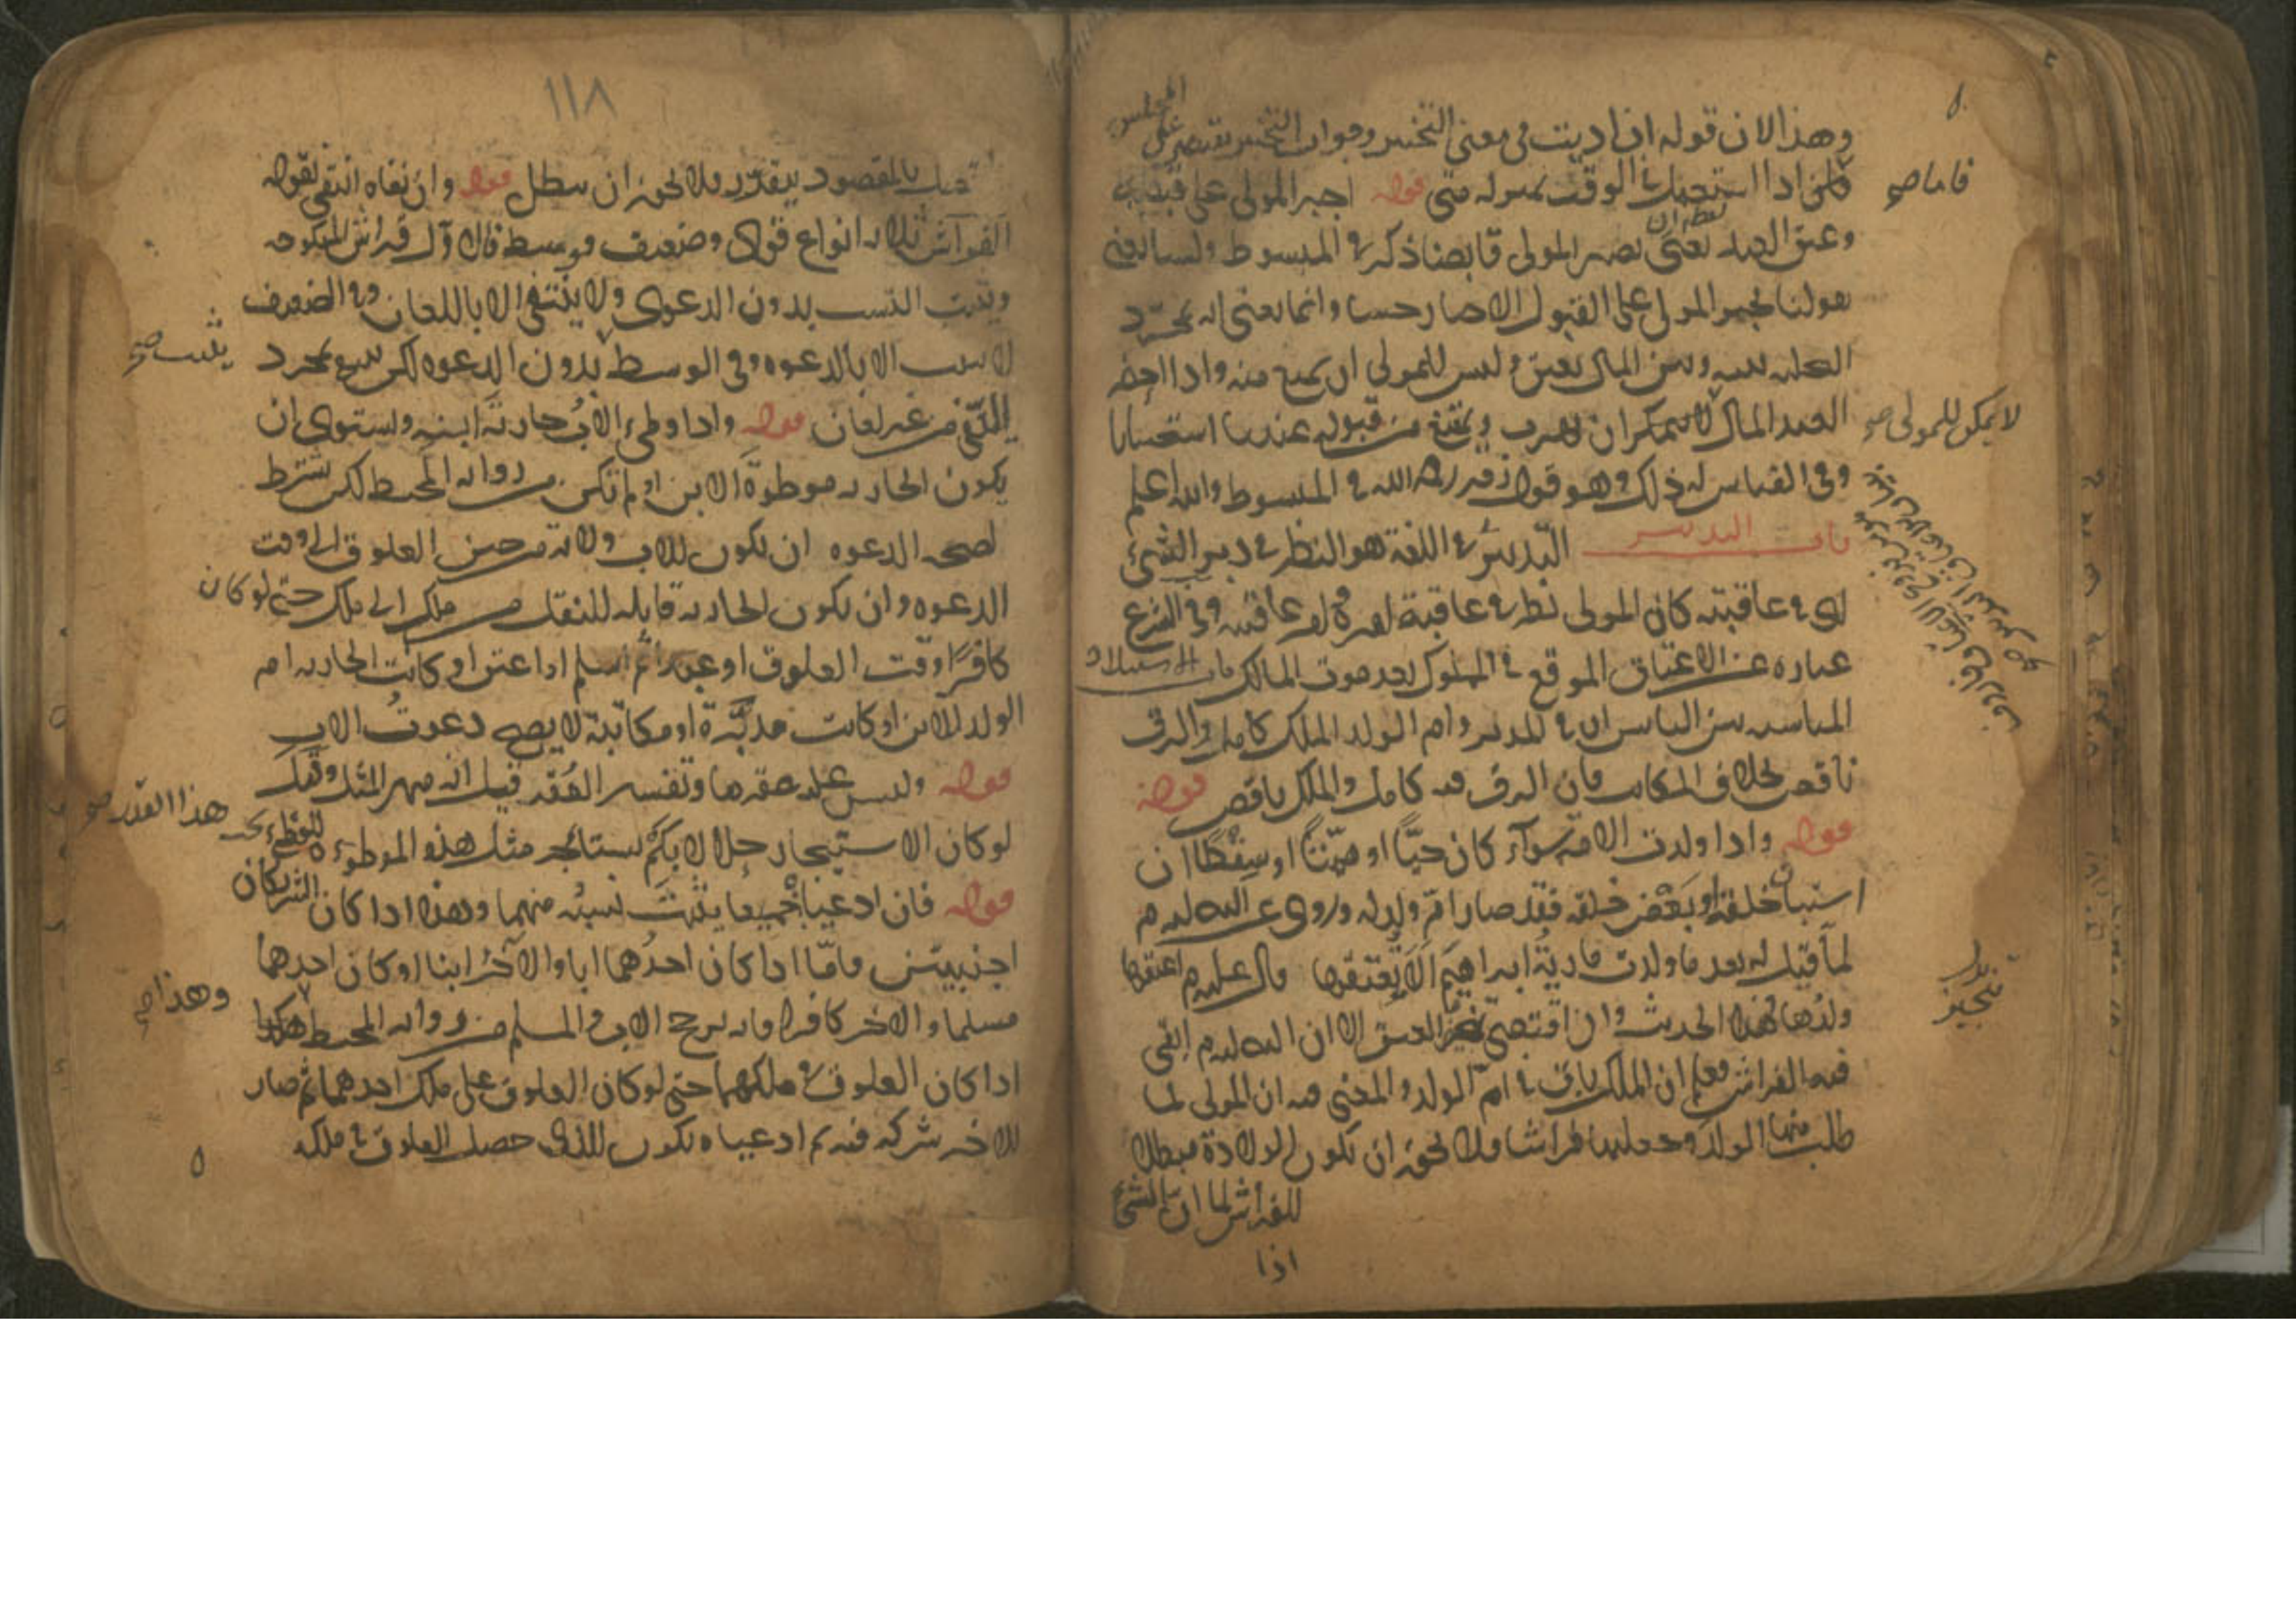 وهذا لان قوله ان اديت في معنى التخيير وجواب التخيير يقتصر على
المجلس
فاما صح
اذا استعمل في الوقت كقوله متى قوله اجبر المولى على قبضه
وعتق العبد يعني يصير المولى قابضا ذكره في المبسوط ولسنا نعني
بقولنا يجبر المولى على القبول الاجبار حسا وانما نعني انه بمجرد
التخلية بينه وبين المال يعتق وليس للمولى ان يمتنع منه واذا احضر
العبد المال لا يتمكن ان يهرب ويمتنع من قبوله عندنا استحسانا
لا يمكن للمولى صح
وفي القياس له ذلك وهو قول زفر رحمه الله في المبسوط والله اعلم
باب التدبير التدبير في اللغة هو النظر في دبر الشيء
اي في عاقبته كان المولى نظر في عاقبة امره وامر عاقبته وفي الشرع
عبارة عن الاعتاق الموقع في المملوك بعد موت المالك باب الاستيلاد
المناسبة بين البابين ان في المدبر وام الولد الملك كامل والرق
ناقص بخلاف المكاتب فان الرق فيه كامل والملك ناقص قوله
قوله واذا ولدت الامة سواء كان حيا او ميتا او سقطا ان
استبان خلقه او بعض خلقه فقد صار ام ولد له وروي عن النبي عليه م
لما قيل له بعد ما ولدت مارية ابراهيم الا تعتقها قال عليه م اعتقها
ولدها فهذا الحديث وان اقتضى تنجيز العتق الا ان النبي عليه م ابقى
تنجيز
فيه الفراش فعلم ان الملك باق في ام الولد والمعنى فيه ان المولى لما
طلب منها الولد وجعلها فراشا فلا يجوز ان تكون الولادة مبطلا
للفراش لما ان الشيء
اذا
١١٨
تصل بالمقصود يتقرر فلا يجوز ان يبطل قوله وان نفاه انتفى بقوله
الفراش ثلاثة انواع قوي وضعيف ووسط فالاول فراش المنكوحة
ويثبت النسب بدون الدعوى ولا ينتفي الا باللعان وفي الضعيف
لا يثبت الا بالدعوة وفي الوسط بدون الدعوة لكن ينتفي بمجرد
يثبت صح
النفي من غير لعان قوله واذا وطئ الاب جارية ابنه ويستوي ان
يكون الجارية موطوة الابن او لم تكن من رواية المحيط لكن شرط
لصحة الدعوة ان تكون للاب ولاية من حين العلوق الى وقت
الدعوة وان تكون الجارية قابلة للنقل من ملك الى ملك حتى لو كان
كافرا وقت العلوق او عبدا ثم اسلم او اعتق او كانت الجارية ام
الولد للابن او كانت مدبرة او مكاتبة لا يصح دعوت الاب
قوله وليس عليه عقرها وتفسير العقر قيل انه مهر المثل وقيل
هذا القدر صح
لو كان الاستيجار حلالا بكم يستاجر مثل هذه الموطوءة للوطي
قوله فان ادعيا جميعا يثبت نسبه منهما وهذا اذا كان الشريكان
اجنبيين واما اذا كان احدهما ابا والآخر ابنا او كان احدهما
مسلما والآخر كافرا فانه يرجح الاب والمسلم من رواية المحيط هكذا
وهذا صح
اذا كان العلوق في ملكهما حتى لو كان العلوق على ملك احدهما ثم صار
للاخر شركة فيه ثم ادعياه تكون للذي حصل العلوق في ملكه